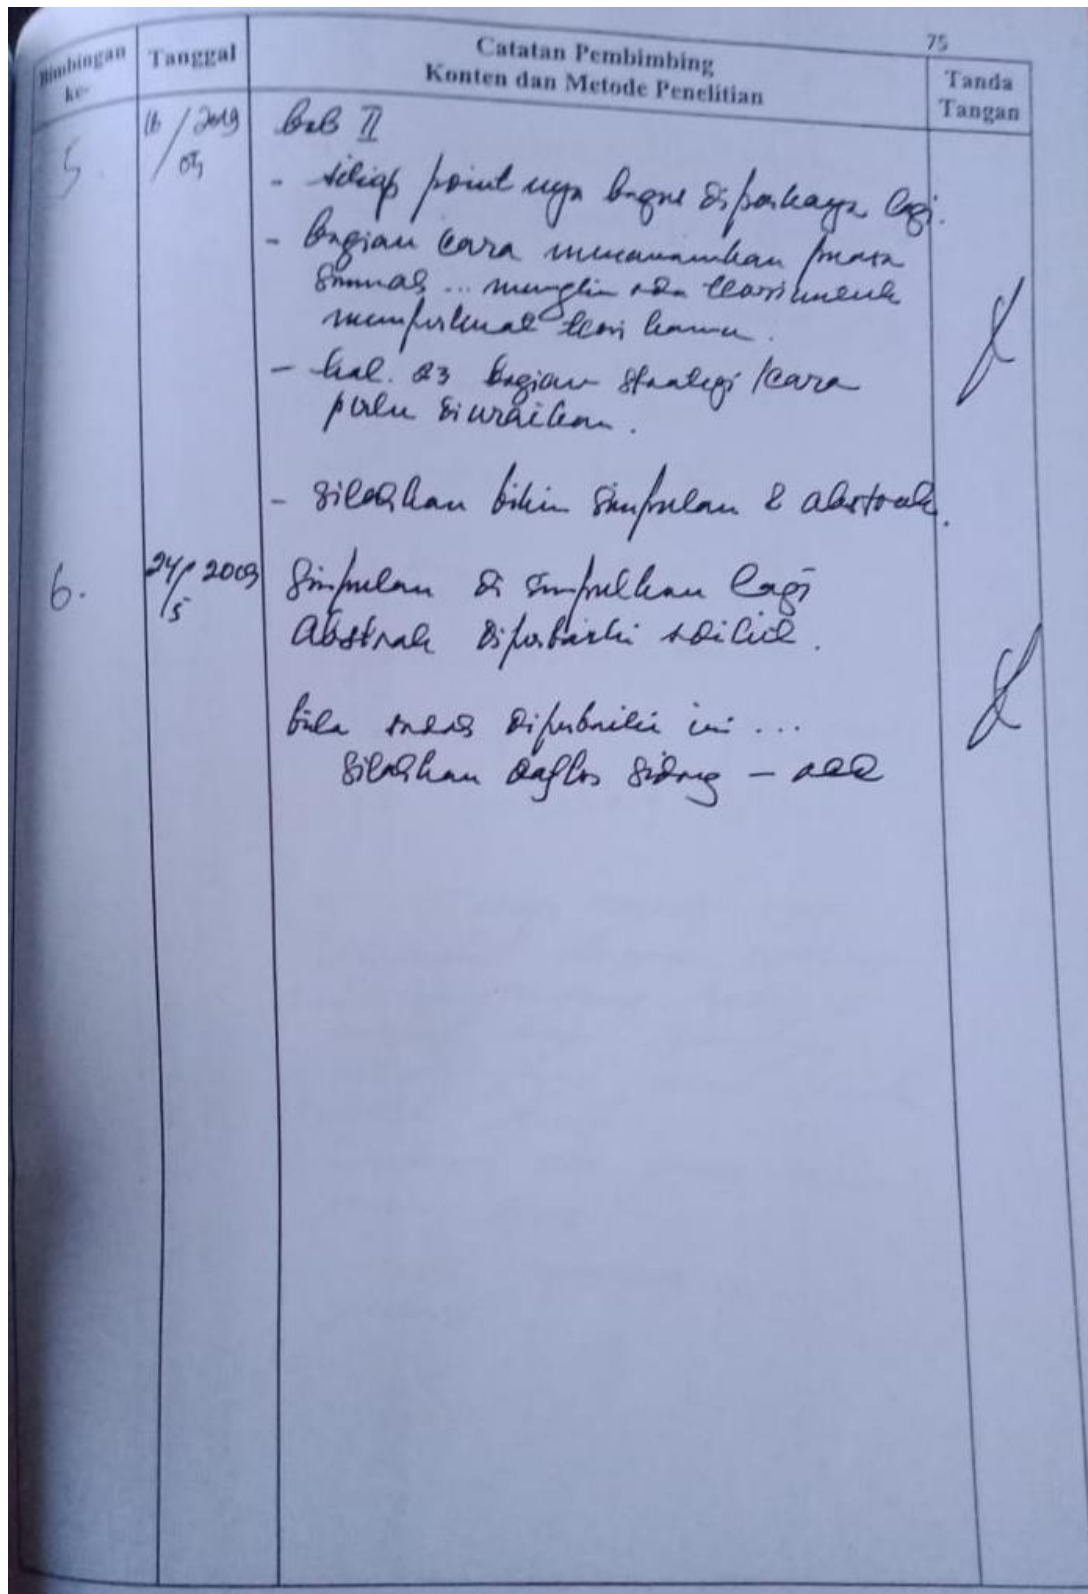 75
Bimbingan ke-
Tanggal
Catatan Pembimbing
Konten dan Metode Penelitian
Tanda
Tangan
5
16 / 2019
05
bab II
- setiap point nya bagus diperkaya lagi.
- bagian cara menanamkan puasa
sunnah ... mungkin ada teori untuk
memperkuat teori kamu.
- hal. 23 bagian strategi / cara
perlu diuraikan.
- silahkan bikin simpulan & abstrak.
6.
24/ 2009
/5
Simpulan di simpulkan lagi
Abstrak diperbaiki sedikit.
bila sudah diperbaiki ini ...
silahkan daftar sidang –